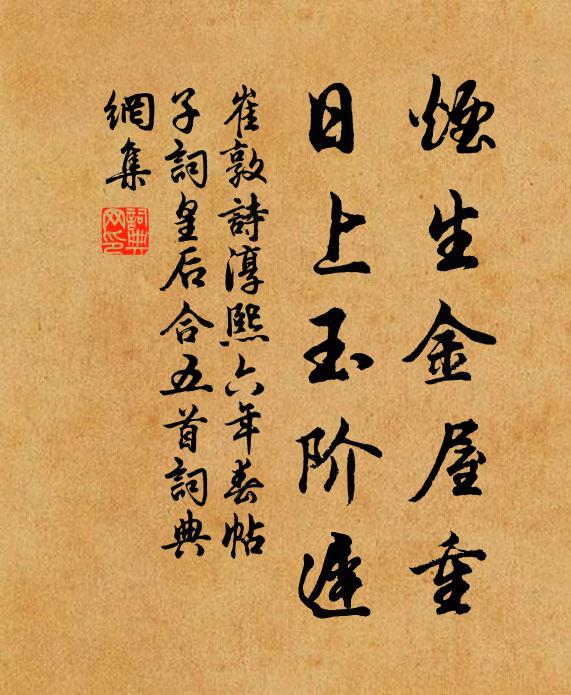 煙生金屋重
日上玉阶遲
崔敦詩淳熙六年春帖
子詞皇后合五首詞典
網集
詞典
网印